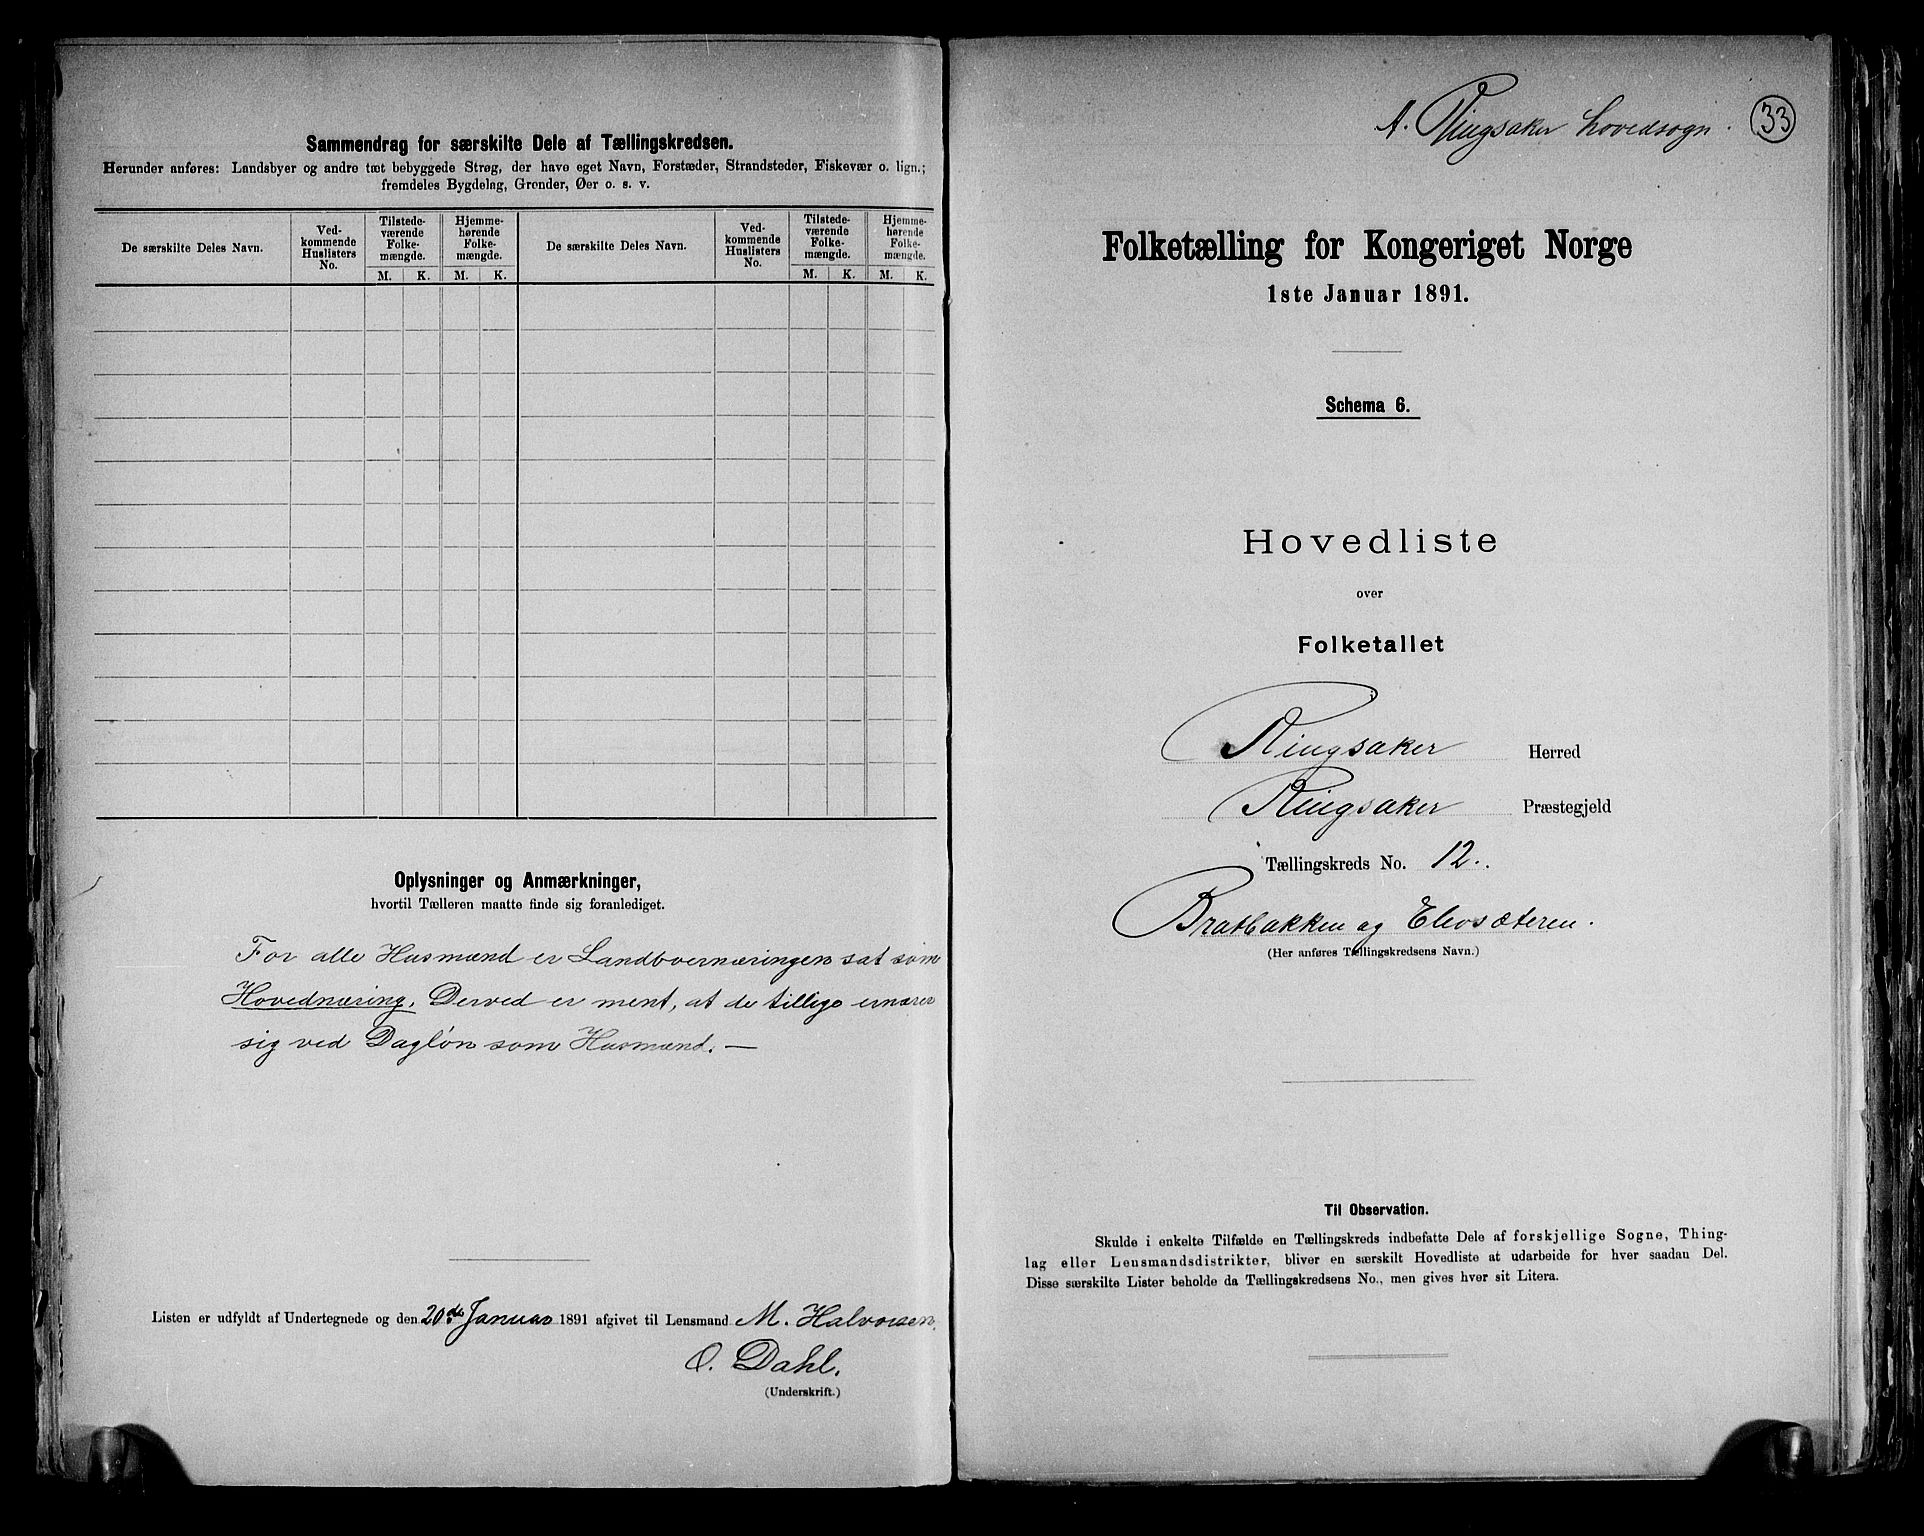 Sammendrag for særskilte Dele af Tællingskredsen.
Herunder anføres: Landsbyer og andre tæt bebyggede Strøg, der have eget Navn, Forstæder, Strandsteder, Fiskevær o. lign.;
fremdeles Bygdelag, Grender, Øer o. s. v.
De særskilte Deles Navn. Ved-kommende Huslisters No. Tilstede-værende Folke-mængde. Hjemme-hørende Folke-mængde. De særskilte Deles Navn. Ved-kommende Huslisters No. Tilstede-værende Folke-mængde. Hjemme-hørende Folke-mængde.
M. K. M. K. M. K. M. K.
Oplysninger og Anmærkninger,
hvortil Tælleren maatte finde sig foranlediget.
For alle Husmænd er Landbovernæringen sat som
Hovednæring. Derved er ment, at de tillige ernærer
sig ved Dagløn som Husmænd. —
Listen er udfyldt af Undertegnede og den 20de Januar 1891 afgivet til Lensmand M. Halvorsen.
O. Dahl.
(Underskrift.)
A. Ringsaker hovedsogn. 33
Folketælling for Kongeriget Norge
1ste Januar 1891.
Schema 6.
Hovedliste
over
Folketallet
Ringsaker Herred
Ringsaker Præstegjeld
Tællingskreds No. 12.
Bratbakken og Elvesæteren.
(Her anføres Tællingskredsens Navn.)
Til Observation.
Skulde i enkelte Tilfælde en Tællingskreds indbefatte Dele af forskjellige Sogne, Thing-
lag eller Lensmandsdistrikter, bliver en særskilt Hovedliste at udarbeide for hver saadan Del.
Disse særskilte Lister beholde da Tællingskredsens No., men gives hver sit Litera.